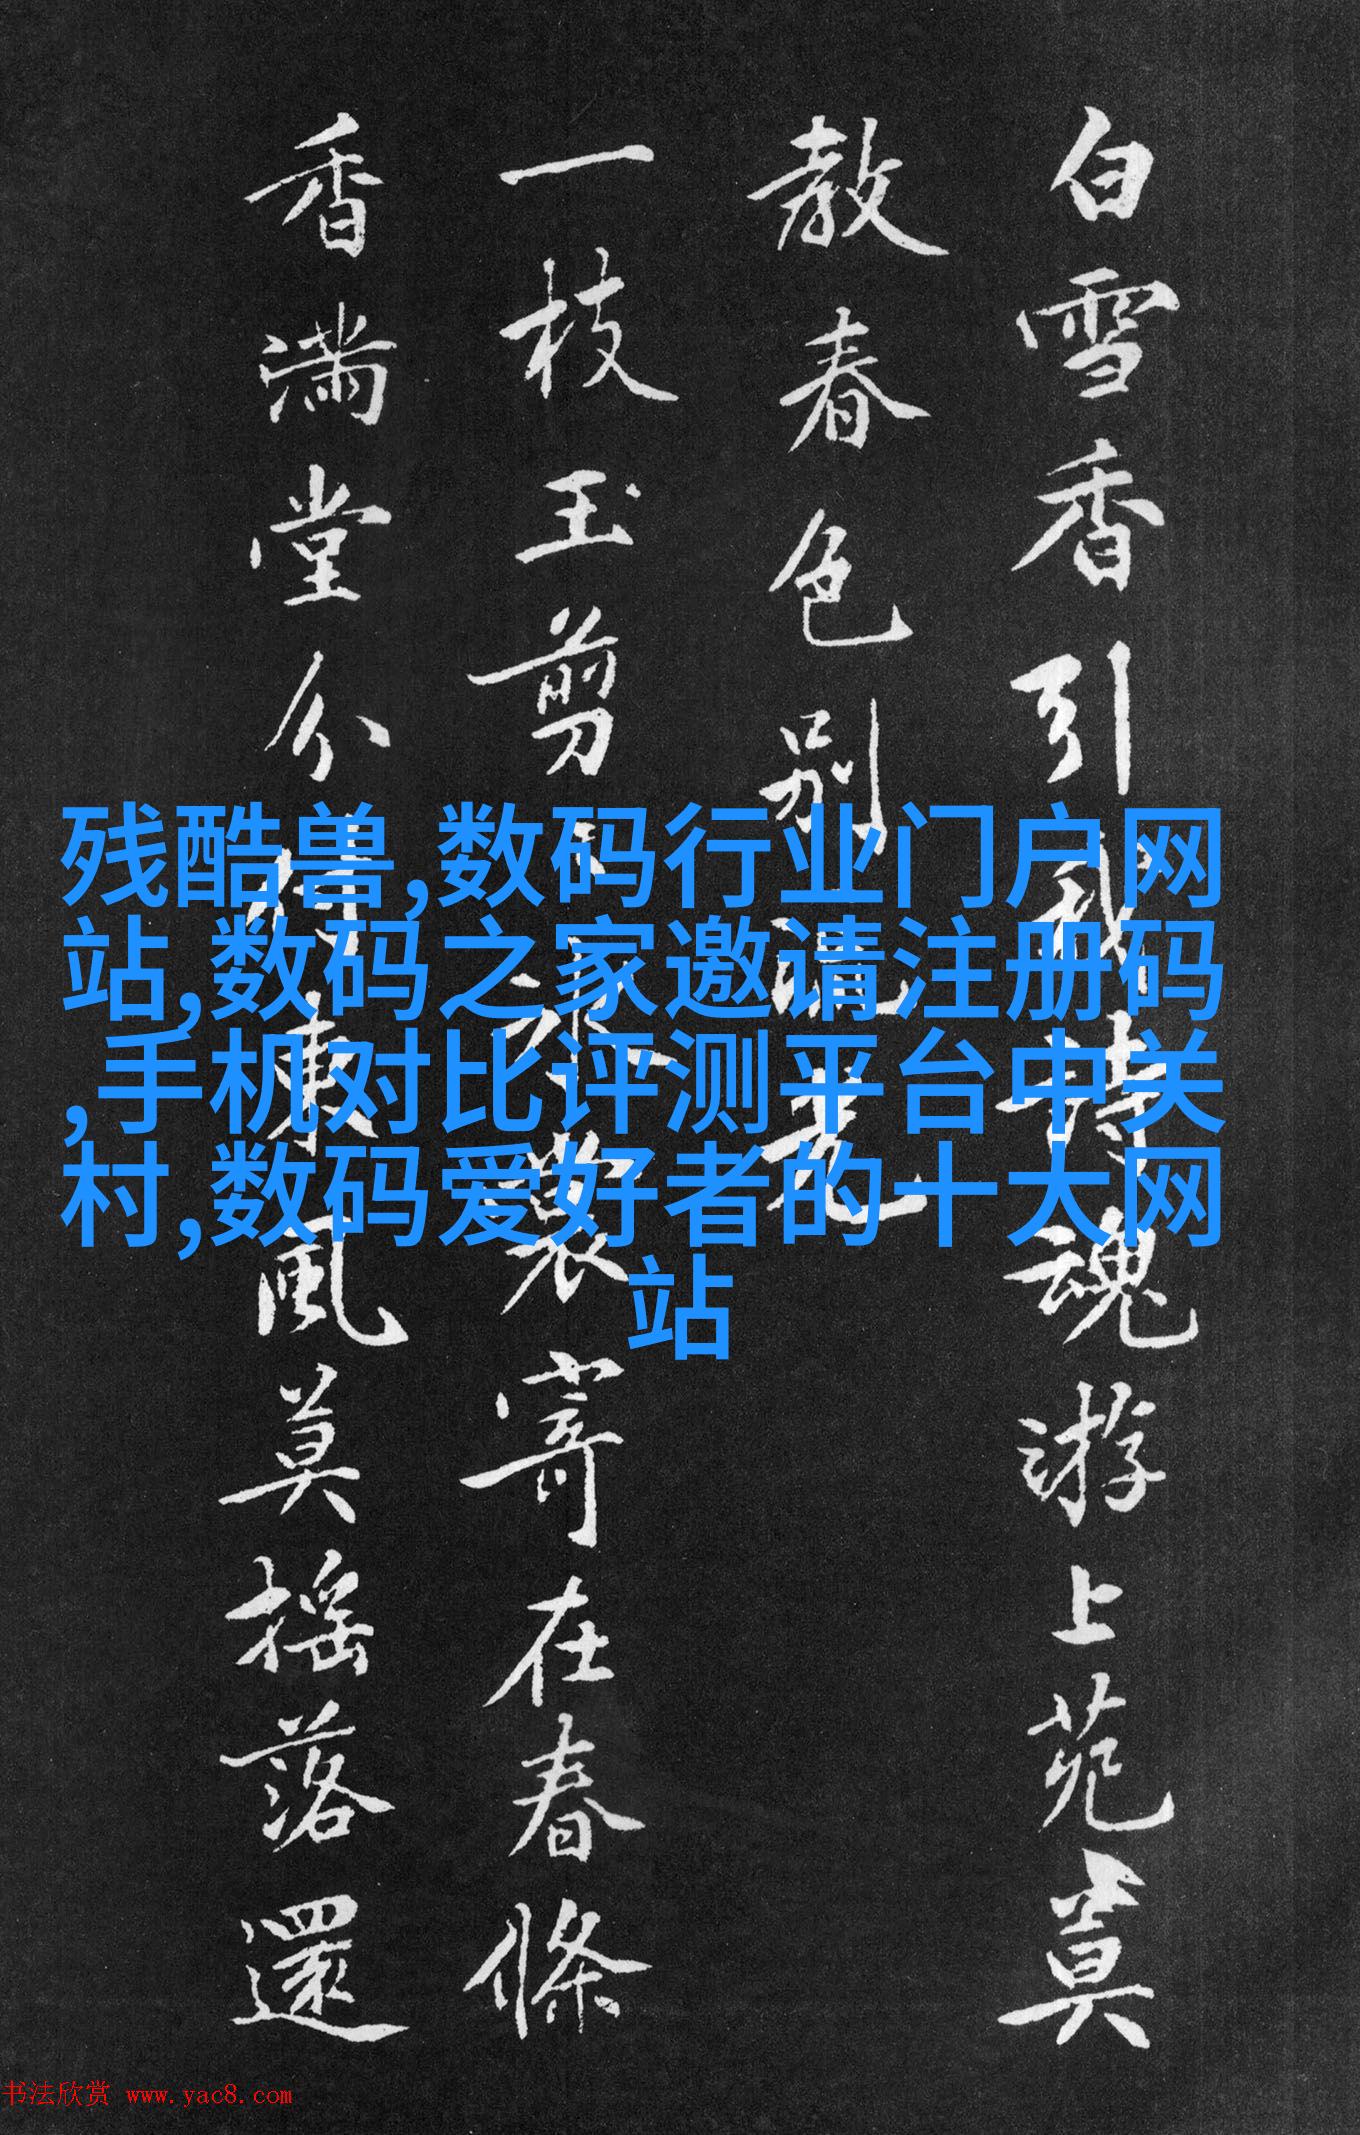 白雪香引我詩魂游上苑莫
教春色別流光
一枝玉剪
裳寄在春條
香滿堂分付東風莫搖落還
残酷兽,数码行业门户网
站,数码之家邀请注册码
,手机对比评测平台中关
村,数码爱好者的十大网
站
书法欣赏 www.yac8.com